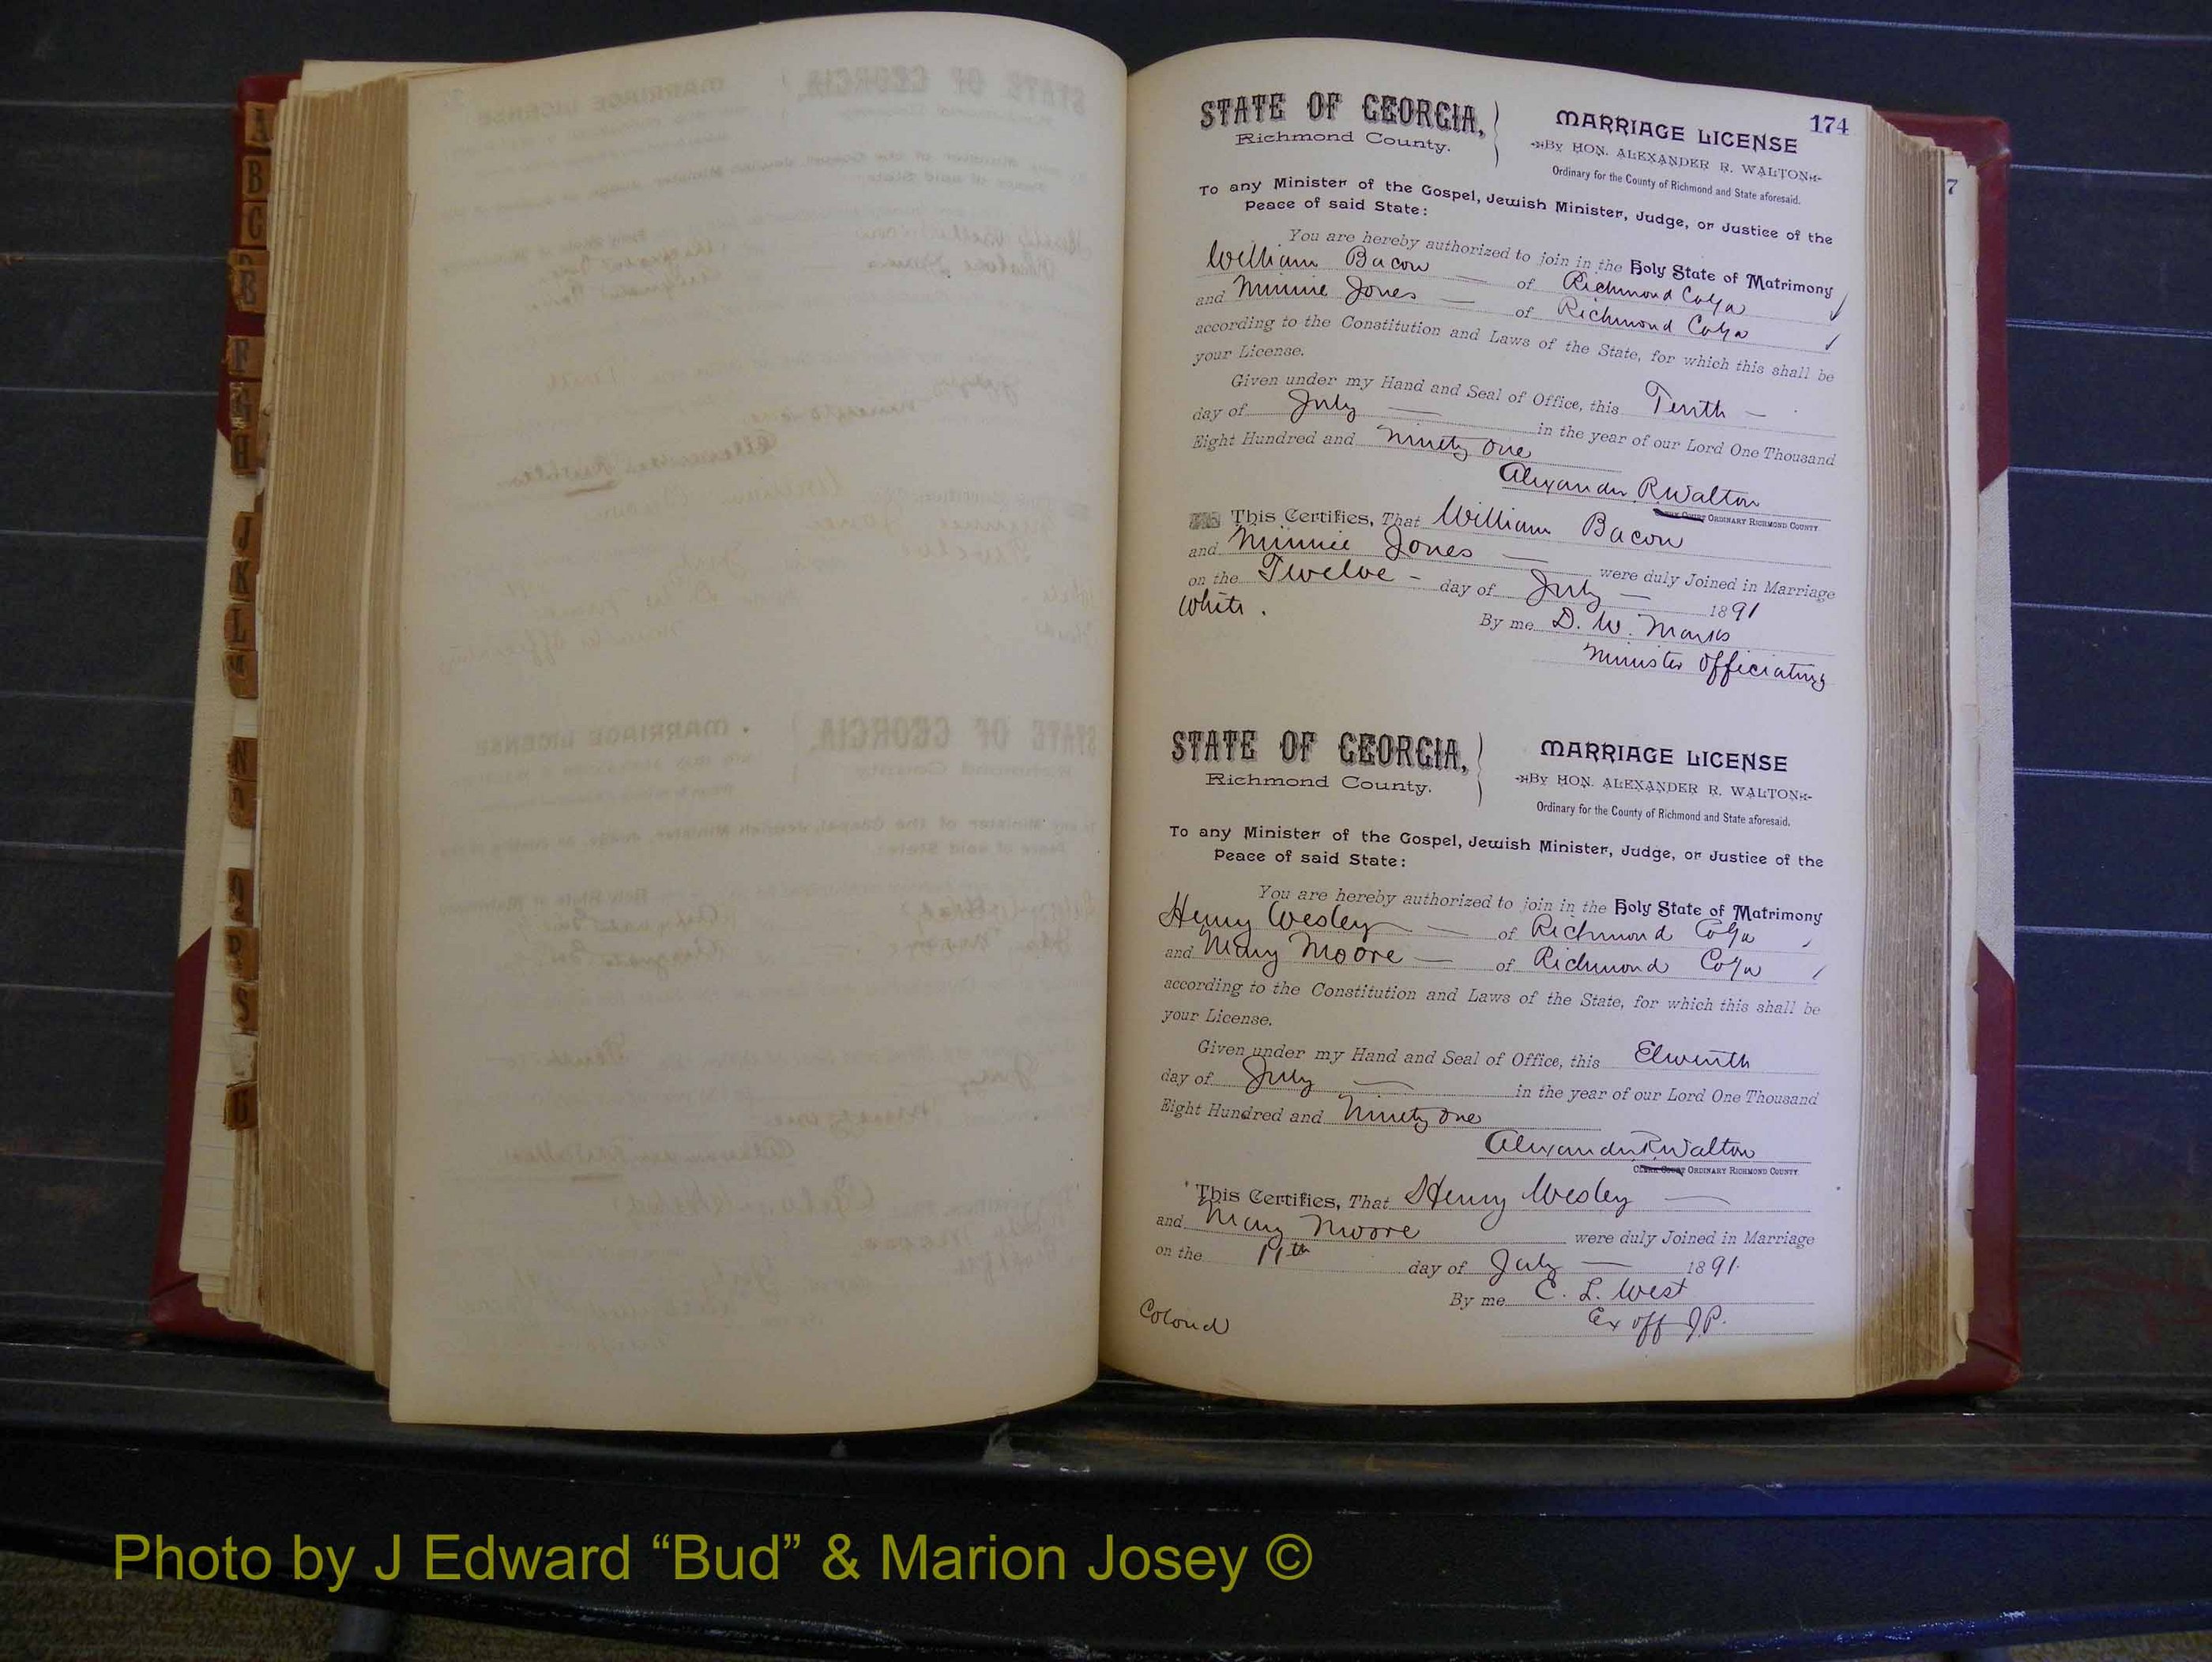 A
B
C
E
F
G
H
J
K
L
M
N
O
Q
R
S
G
174
7
STATE OF GEORGIA,
Richmond County.
MARRIAGE LICENSE
BY HON. ALEXANDER R. WALTON
Ordinary for the County of Richmond and State aforesaid.
To any Minister of the Gospel, Jewish Minister, Judge, or Justice of the
Peace of said State:
You are hereby authorized to join in the Holy State of Matrimony
William Bacon of Richmond Co Ga
and Minnie Jones of Richmond Co Ga
according to the Constitution and Laws of the State, for which this shall be
your License.
Given under my Hand and Seal of Office, this Tenth
day of July in the year of our Lord One Thousand
Eight Hundred and Ninety One
Alexander R Walton
CLERK COURT ORDINARY RICHMOND COUNTY
This Certifies, That William Bacon
and Minnie Jones were duly Joined in Marriage
on the Twelve day of July 1891
White. By me D. W. Marks
Minister Officiating
STATE OF GEORGIA,
Richmond County.
MARRIAGE LICENSE
BY HON. ALEXANDER R. WALTON
Ordinary for the County of Richmond and State aforesaid.
To any Minister of the Gospel, Jewish Minister, Judge, or Justice of the
Peace of said State:
You are hereby authorized to join in the Holy State of Matrimony
Henry Wesley of Richmond Co Ga
and Mary Moore of Richmond Co Ga
according to the Constitution and Laws of the State, for which this shall be
your License.
Given under my Hand and Seal of Office, this Eleventh
day of July in the year of our Lord One Thousand
Eight Hundred and Ninety One
Alexander R Walton
CLERK COURT ORDINARY RICHMOND COUNTY
This Certifies, That Henry Wesley
and Mary Moore were duly Joined in Marriage
on the 11th day of July 1891.
By me C. L. West
Colored Ex off J.P.
Photo by J Edward “Bud” & Marion Josey ©